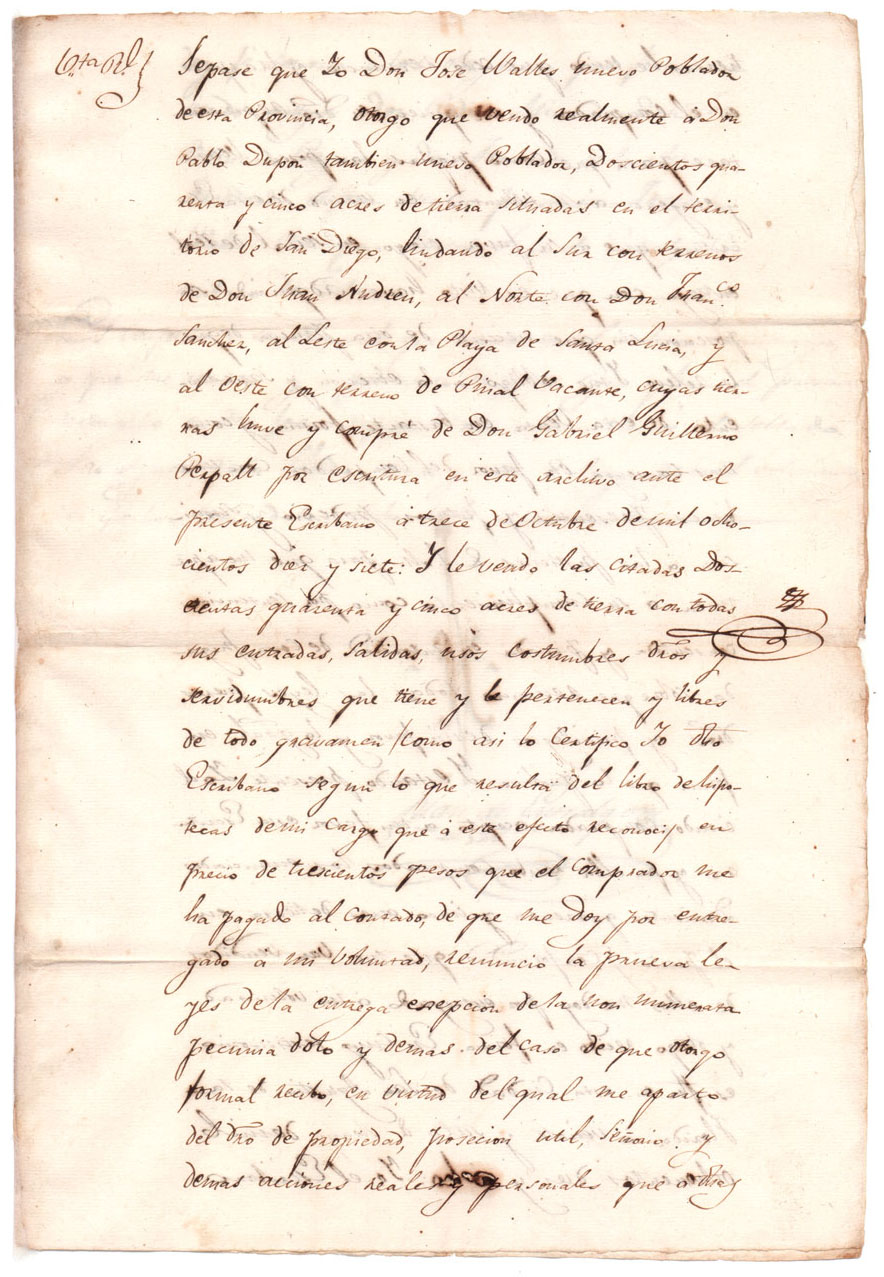 Vta Rl
Sepase que Yo Don Jose Walles nuevo Poblador
de esta Provincia, otorgo que vendo realmente á Don
Pablo Dupon tambien nuevo Poblador, Doscientos qua-
renta y cinco acres de tierra situadas en el terri-
torio de San Diego, lindando al Sur con terrenos
de Don Juan Andreu, al Norte con Don Franco.
Sanchez, al Leste con la Playa de Santa Lucia, y
al Oeste con terreno de Pinal Vacante, cuyas tier-
ras huve y compré de Don Gabriel Guillermo
Perpall por escritura en este archivo ante el
presente Escribano á trece de Octubre de mil ocho-
cientos diez y siete: Y le vendo las citadas Dos-
cientas quarenta y cinco acres de tierra con todas
sus entradas, salidas, usos costumbres dros y
servidumbres que tiene y le pertenecen y libres
de todo gravamen (como asi lo Certifico Yo dho
Escribano segun lo que resulta del libro de hipo-
tecas de mi cargo que á este efecto reconoci) en
precio de trescientos pesos que el Comprador me
ha pagado al contado, de que me doy por entre-
gado á mi voluntad, renuncio la prueva le-
yes de la entrega esepcion de la non numerata
pecunia dolo y demas del caso de que otorgo
formal recibo, en virtud del qual me aparto
del dro de propiedad, posecion util, Señorio y
demas acciones reales y personales que á dhas